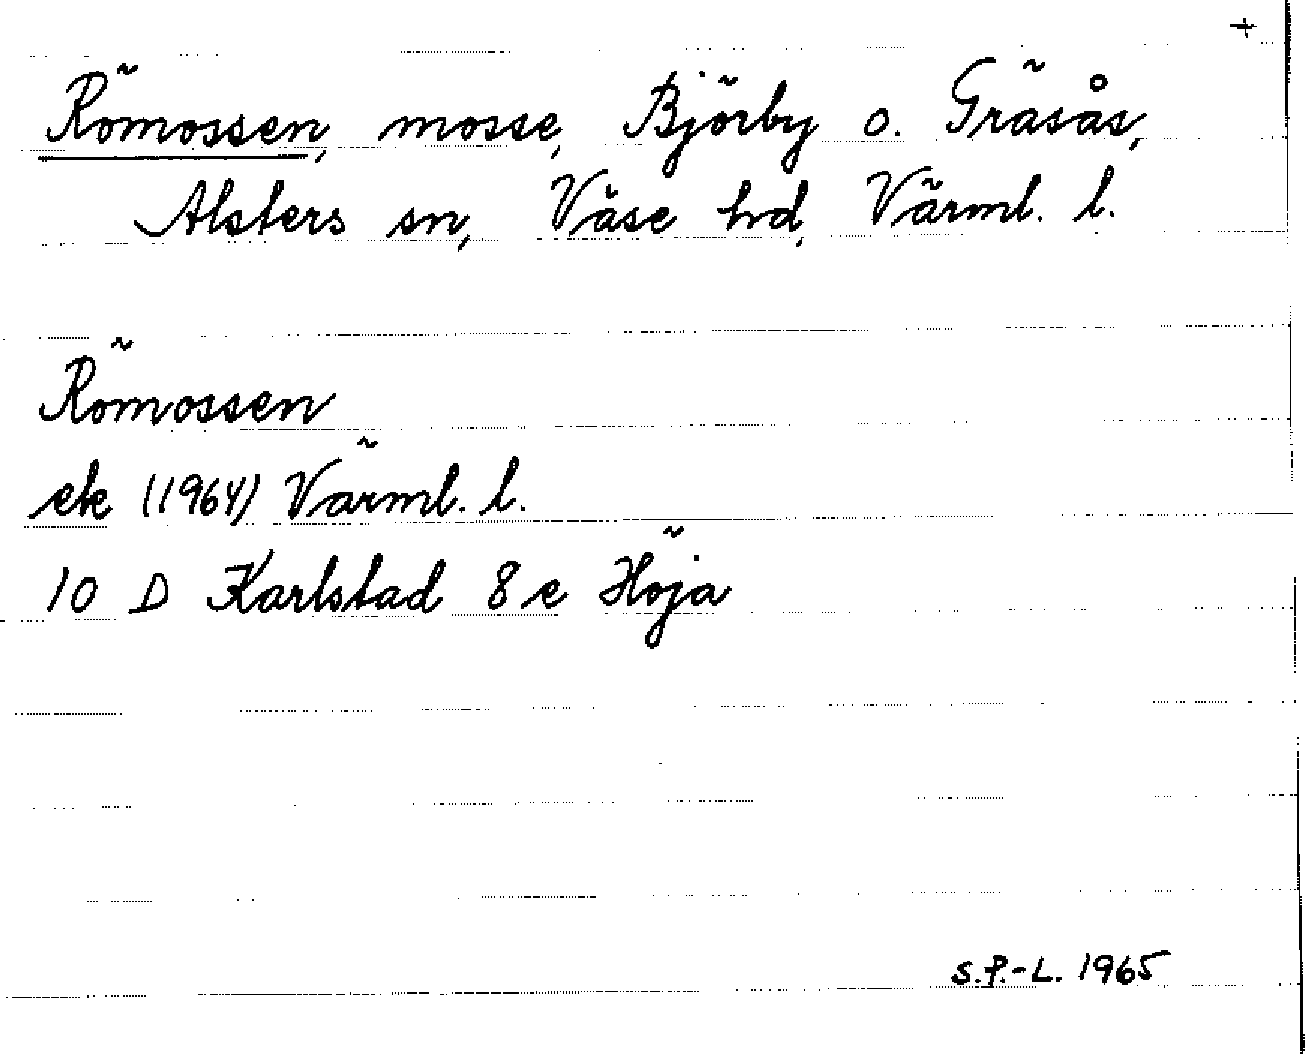 +
Römossen, mosse, Björby o. Gräsås,
Alsters sn, Väse hrd, Värml. l.
Römossen
ek (1964) Värml. l.
10 D Karlstad 8 e Höja
S.P.-L. 1965